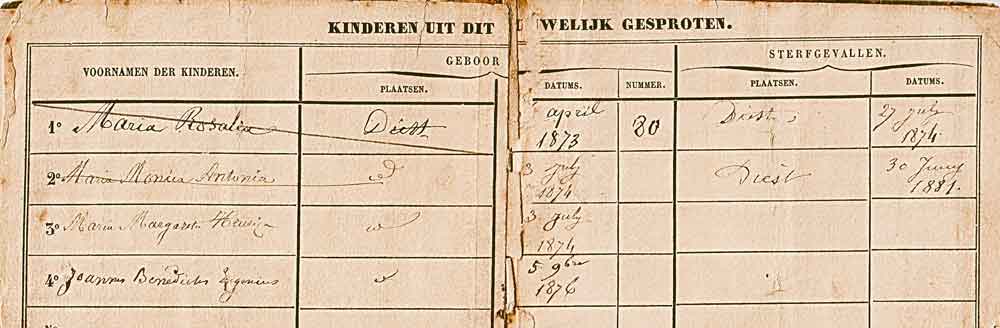 KINDEREN UIT DIT WELIJK GESPROTEN.
VOORNAMEN DER KINDEREN.
GEBOOR
STERFGEVALLEN.
PLAATSEN.
DATUMS.
NUMMER.
PLAATSEN.
DATUMS.
1° Maria Rosalia Diest april 1873 30 Diest 27 july 1874
2° Maria Monica Antonia d 3 july 1874 Diest 30 Juny 1881.
3° Maria Margareta d 3 july 1874
4° Joannes Benedictus Eugenius d 5 9bre 1876